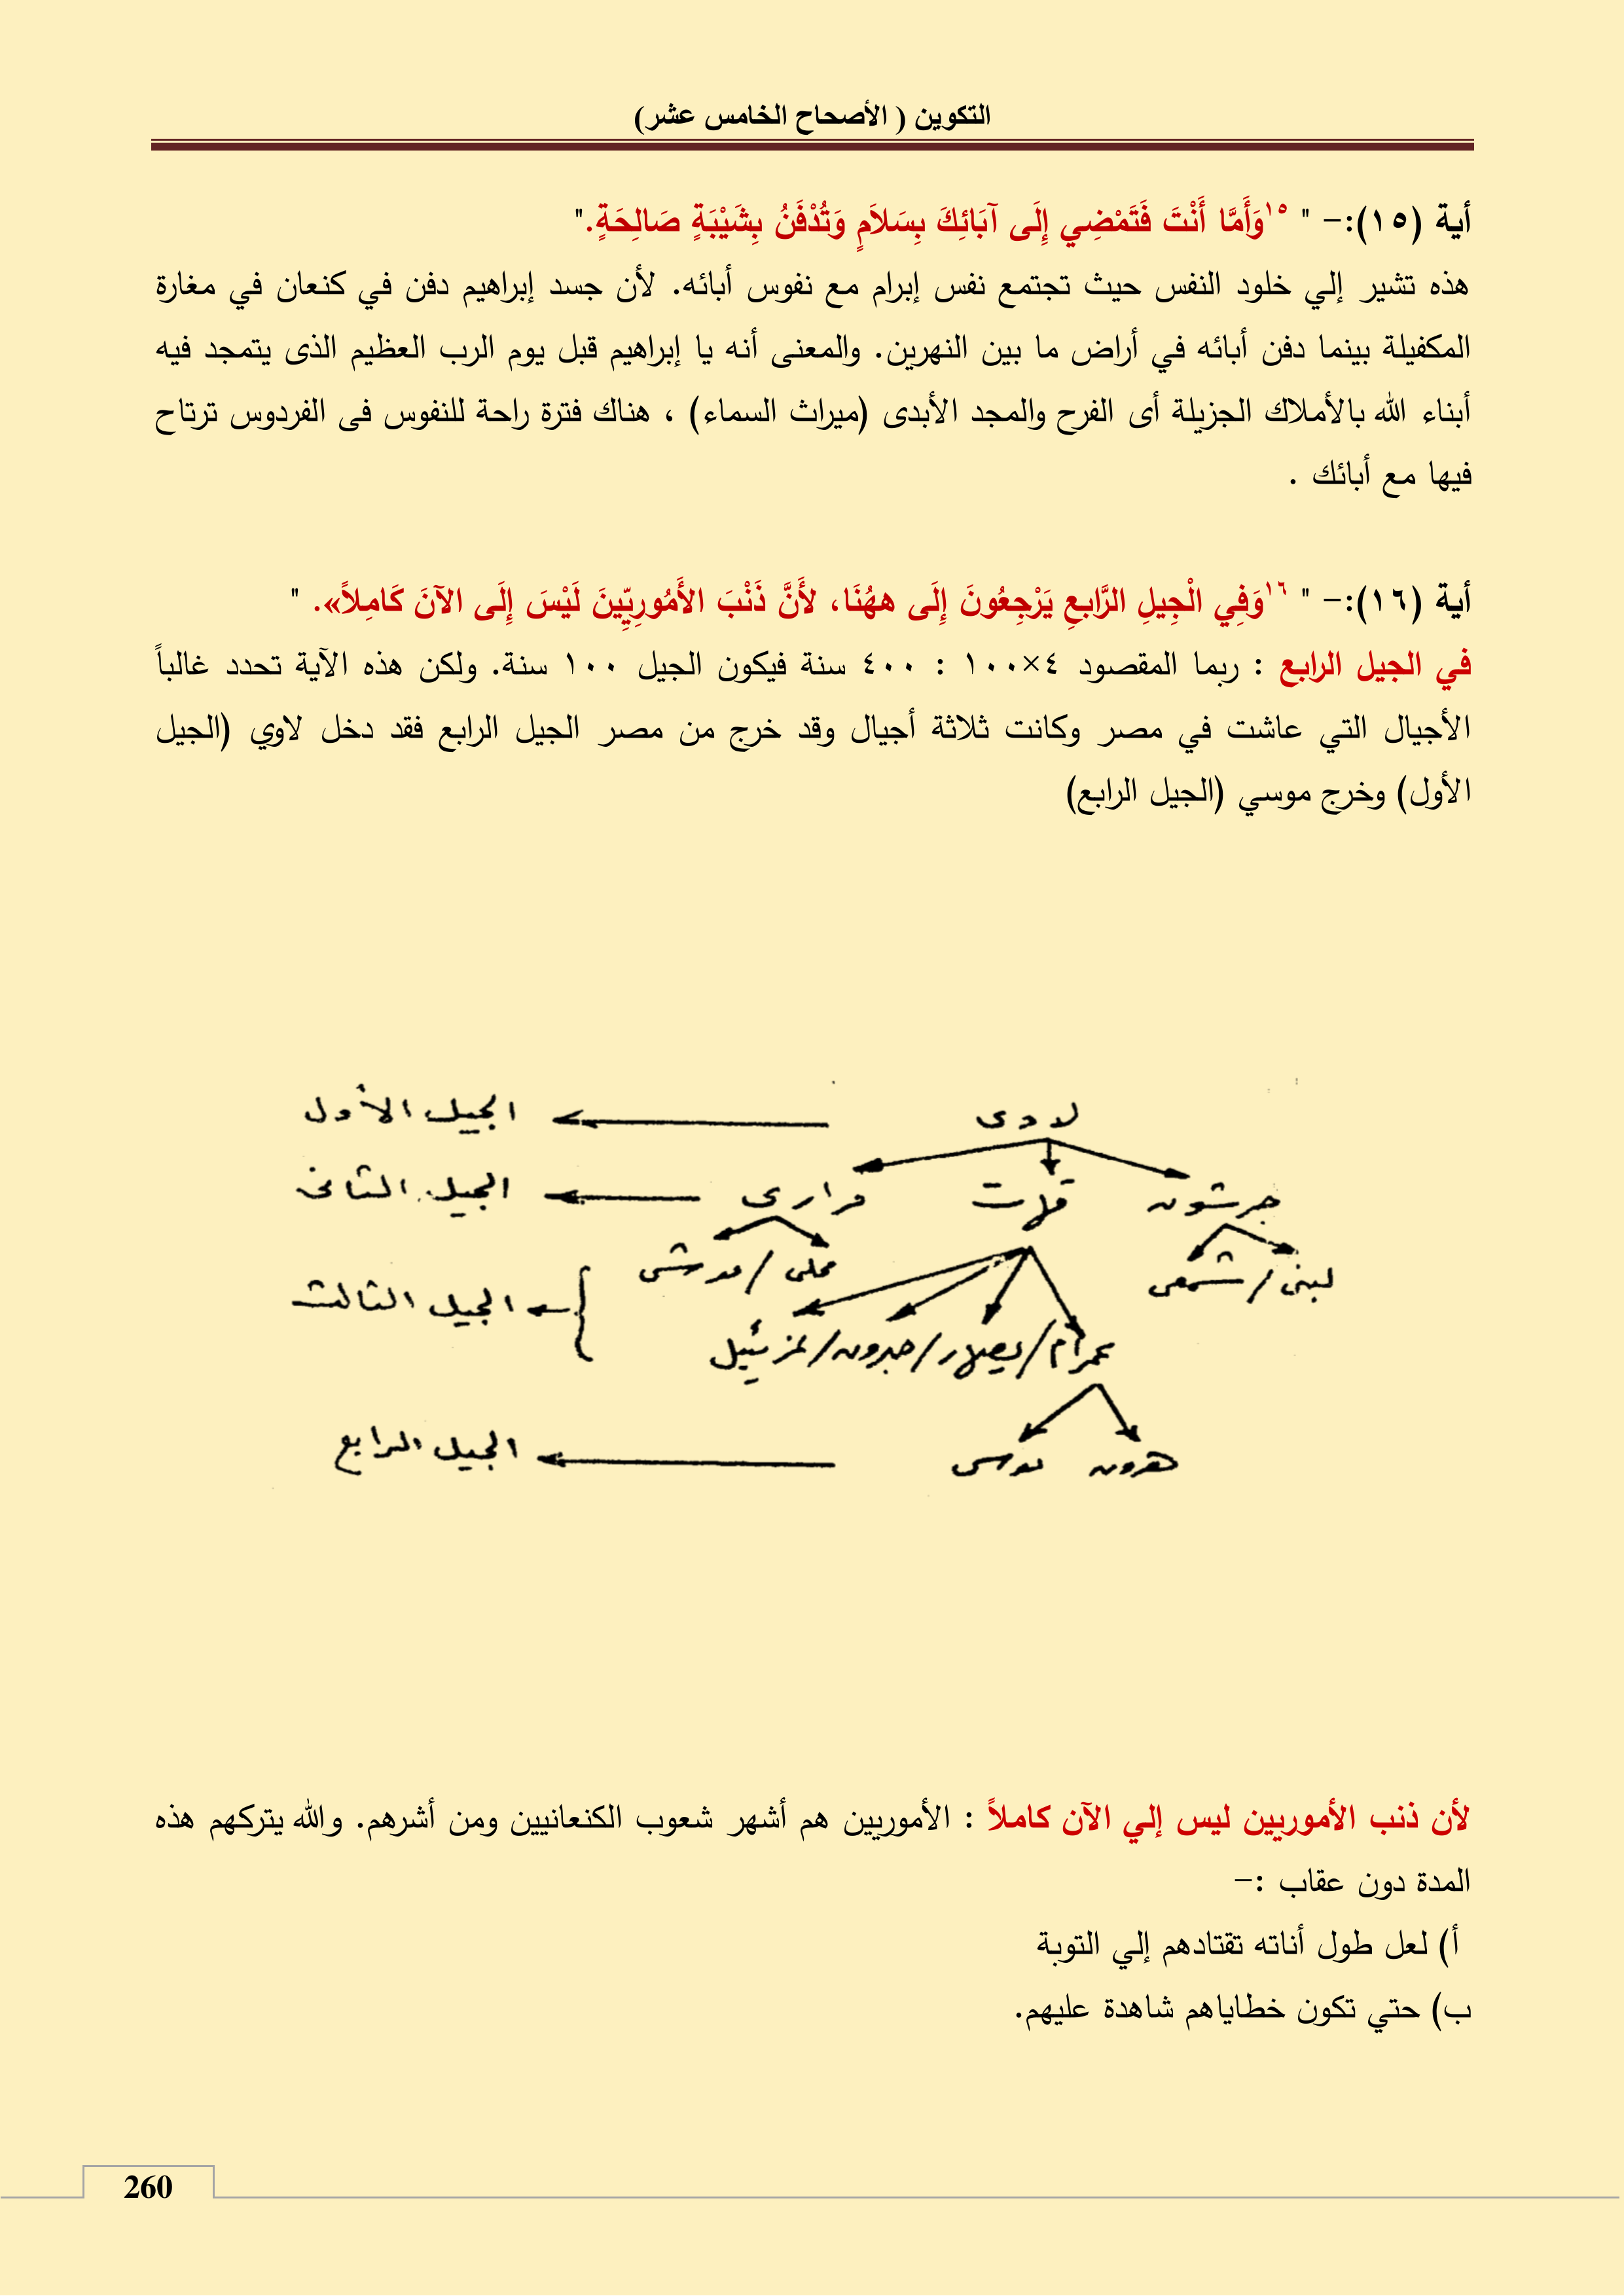 التكوين ( الأصحاح الخامس عشر)
أية (١٥):- " ١٥وَأَمَّا أَنْتَ فَتَمْضِي إِلَى آبَائِكَ بِسَلاَمٍ وَتُدْفَنُ بِشَيْبَةٍ صَالِحَةٍ."
هذه تشير إلي خلود النفس حيث تجتمع نفس إبرام مع نفوس أبائه. لأن جسد إبراهيم دفن في كنعان في مغارة
المكفيلة بينما دفن أبائه في أراض ما بين النهرين. والمعنى أنه يا إبراهيم قبل يوم الرب العظيم الذى يتمجد فيه
أبناء الله بالأملاك الجزيلة أى الفرح والمجد الأبدى (ميراث السماء) ، هناك فترة راحة للنفوس فى الفردوس ترتاح
فيها مع أبائك .
أية (١٦):- " ١٦وَفِي الْجِيلِ الرَّابعِ يَرْجِعُونَ إِلَى ههُنَا، لأَنَّ ذَنْبَ الأَمُورِيِّينَ لَيْسَ إِلَى الآنَ كَامِلاً». "
في الجيل الرابع : ربما المقصود ٤×١٠٠ : ٤٠٠ سنة فيكون الجيل ١٠٠ سنة. ولكن هذه الآية تحدد غالباً
الأجيال التي عاشت في مصر وكانت ثلاثة أجيال وقد خرج من مصر الجيل الرابع فقد دخل لاوي (الجيل
الأول) وخرج موسي (الجيل الرابع)
لاوى الجيل الأول
جرشون قهات مرارى الجيل الثانى
لبنى / شمعى محلى / موشى
الجيل الثالث
عمرام / يصهار / حبرون / عزئيل
هرون موسى الجيل الرابع
لأن ذنب الأموريين ليس إلي الآن كاملاً : الأموريين هم أشهر شعوب الكنعانيين ومن أشرهم. والله يتركهم هذه
المدة دون عقاب :-
أ) لعل طول أناته تقتادهم إلي التوبة
ب) حتي تكون خطاياهم شاهدة عليهم.
260